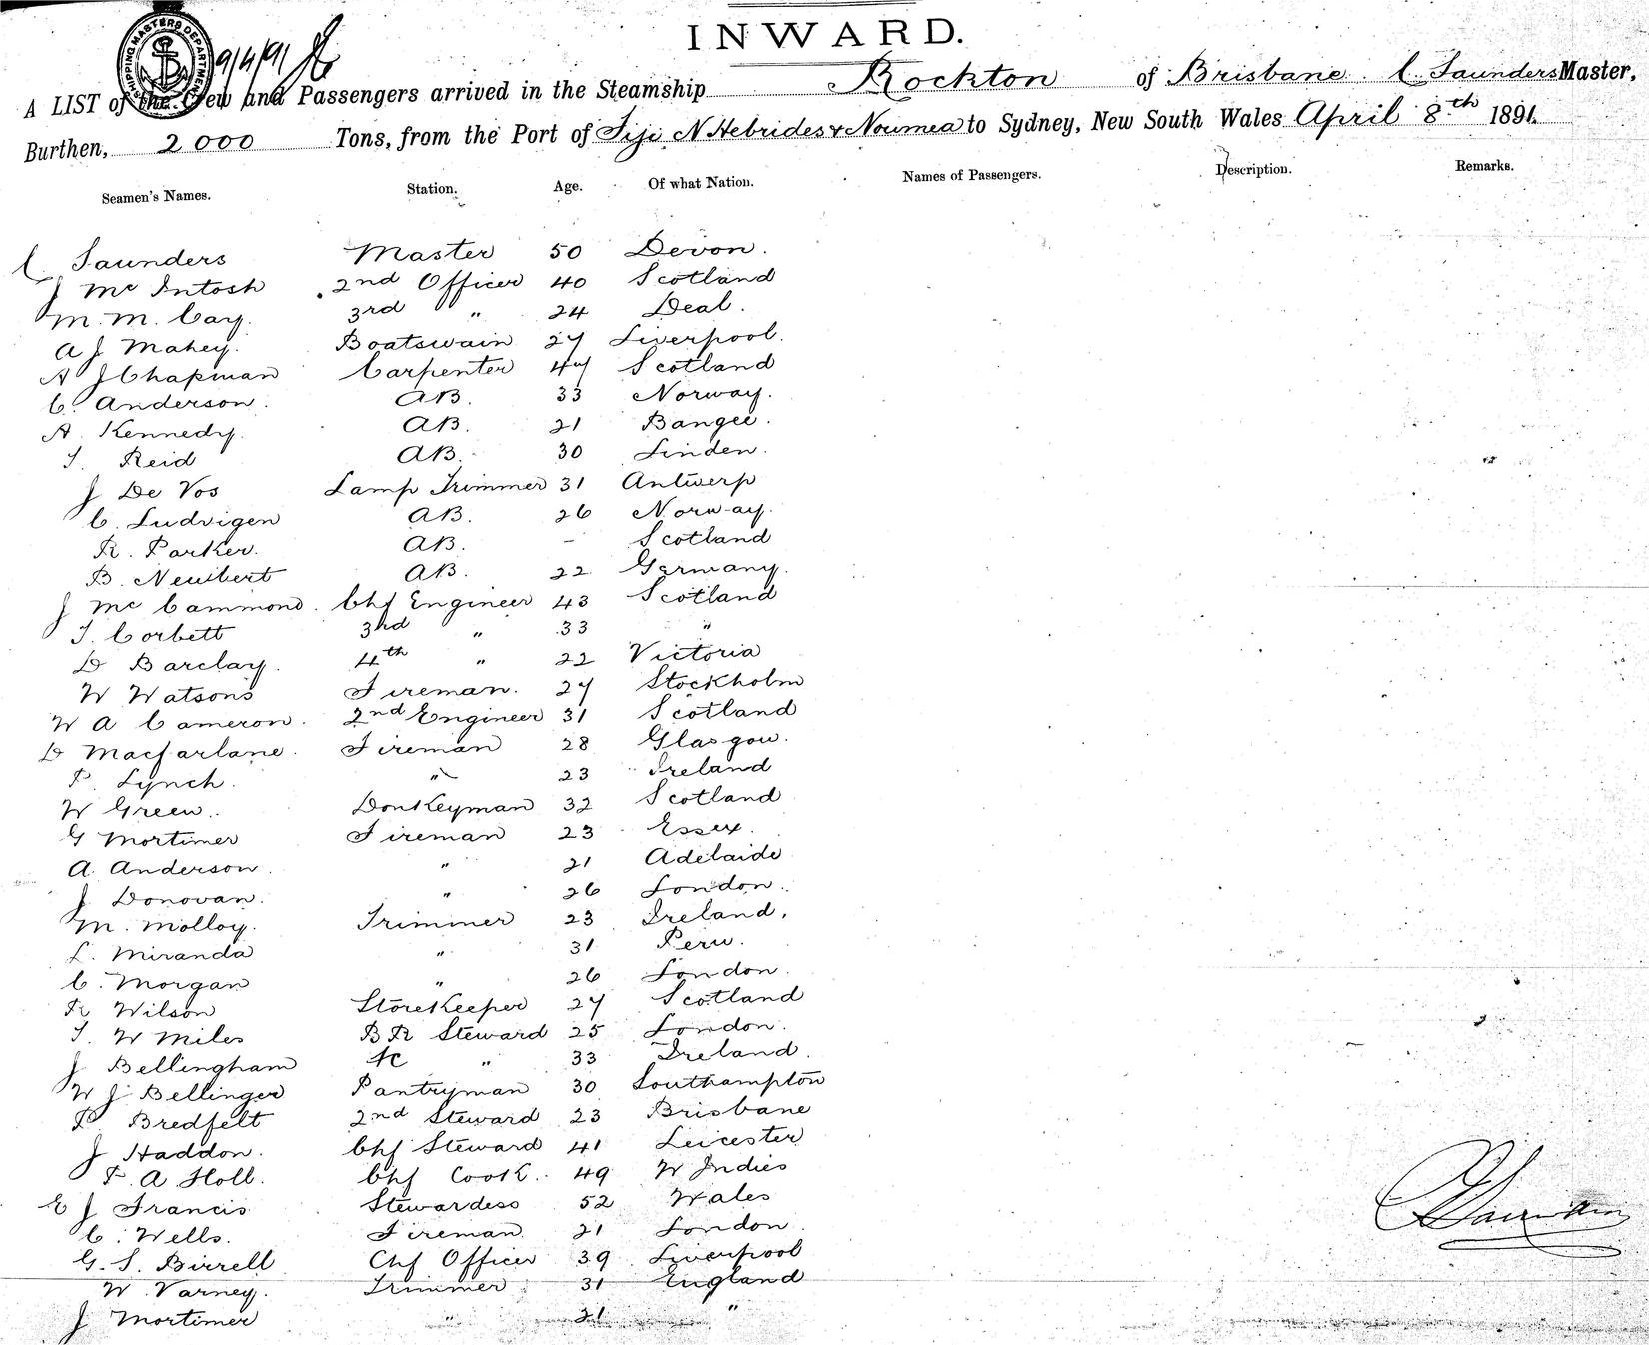 INWARD.
SHIPPING MASTERS DEPARTMENT
9/4/91
A LIST of the Crew and Passengers arrived in the Steamship Rockton of Brisbane. C Saunders Master,
Burthen, 2000 Tons, from the Port of Fiji N Hebrides & Noumea to Sydney, New South Wales April 8th 1891.
Seamen's Names. Station. Age. Of what Nation. Names of Passengers. Description. Remarks.
C Saunders Master 50 Devon.
J McIntosh 2nd Officer 40 Scotland
M. M. Cay. 3rd " 24 Deal.
A J Mahey. Boatswain 27 Liverpool.
A J Chapman Carpenter 47 Scotland
C. Anderson. AB. 33 Norway.
A. Kennedy. AB. 21 Bangee.
T. Reid AB. 30 Linden.
J De Vos Lamp Trimmer 31 Antwerp
C. Ludvigen AB. 26 Norway.
R. Parker. AB. - Scotland
B. Neuibert AB. 22 Germany.
J McCammond. Chf Engineer 43 Scotland
T. Corbett 3rd " 33 "
D Barclay. 4th " 22 Victoria
W Watsons Fireman. 27 Stockholm
W A Cameron. 2nd Engineer 31 Scotland
D Macfarlane. Fireman 28 Glasgow.
P. Lynch. " 23 Ireland
W Green. Donkeyman 32 Scotland
G Mortimer Fireman 23 Essex.
A. Anderson. " 21 Adelaide
J Donovan. " 26 London.
M. Molloy. Trimmer 23 Ireland.
L. Miranda " 31 Peru.
C. Morgan " 26 London.
R Wilson Storekeeper 27 Scotland
T. W Miles B R Steward 25 London.
J Bellingham " 33 Ireland.
W J Bellinger Pantryman 30 Southampton
P. Bredfelt 2nd Steward 23 Brisbane
J Haddon. Chf Steward 41 Leicester
P. A Holl. Chf Cook. 49 W Indies
E J Francis Stewardess 52 Wales
C. Wells. Fireman 21 London.
G. S. Birrell Chf Officer 39 Liverpool
W. Varney. Trimmer 31 England
J Mortimer " 21 "